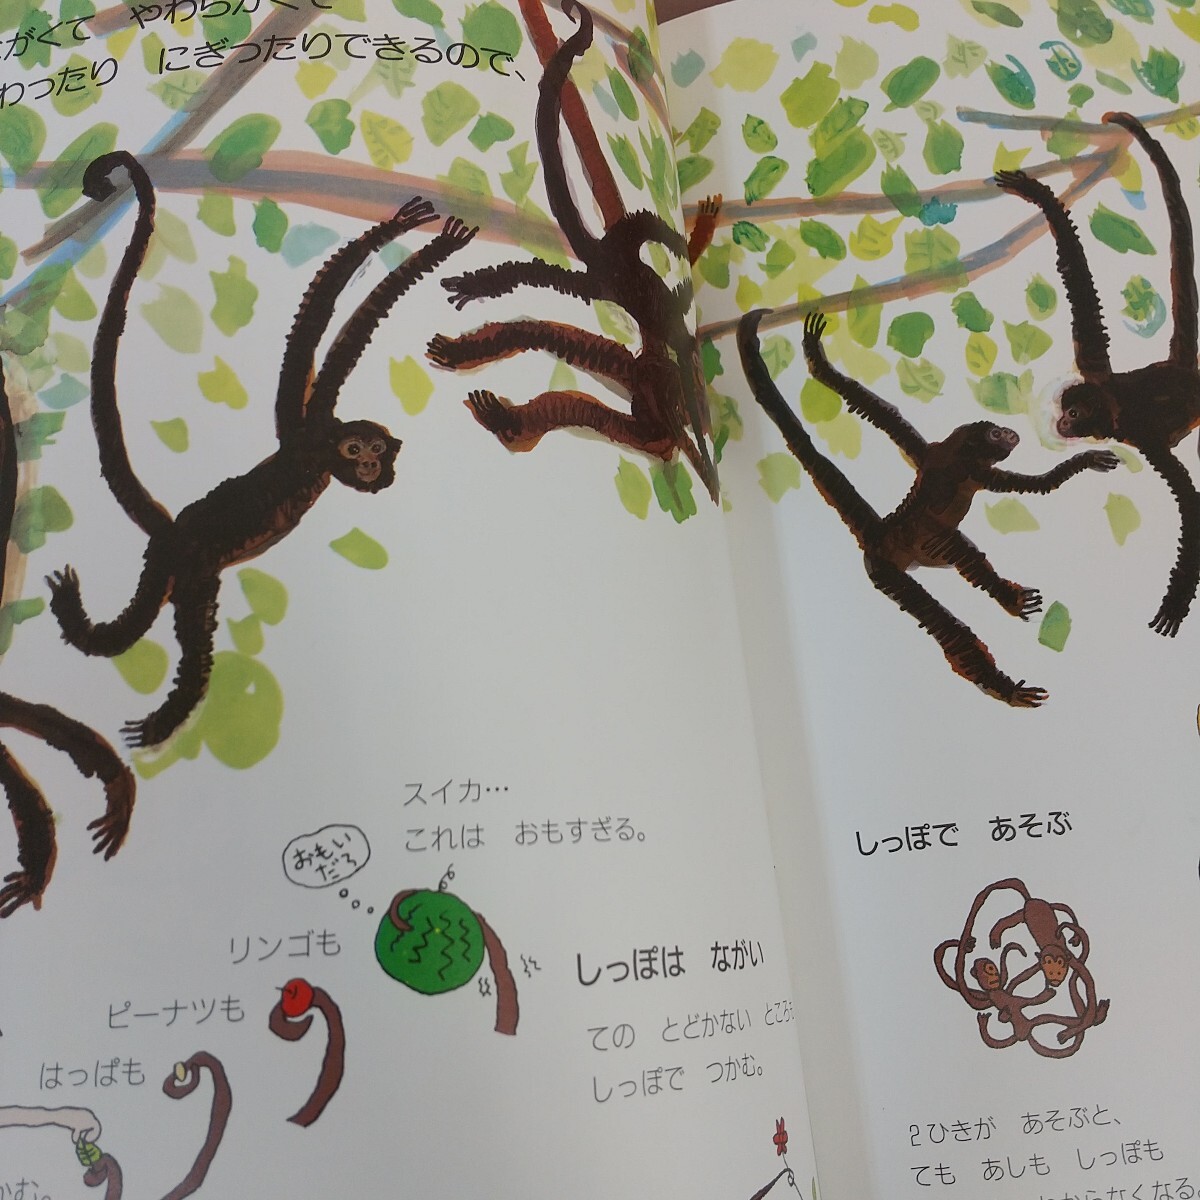 がくて やわらかくて
わったり にぎったりできるので、
スイカ…
これは おもすぎる。
おもい
だろ
リンゴも
ピーナツも
はっぱも
かむ。
しっぽは ながい
ての とどかない ところ
しっぽで つかむ。
しっぽで あそぶ
2ひきが あそぶと、
ても あしも しっぽも
わからなくなる